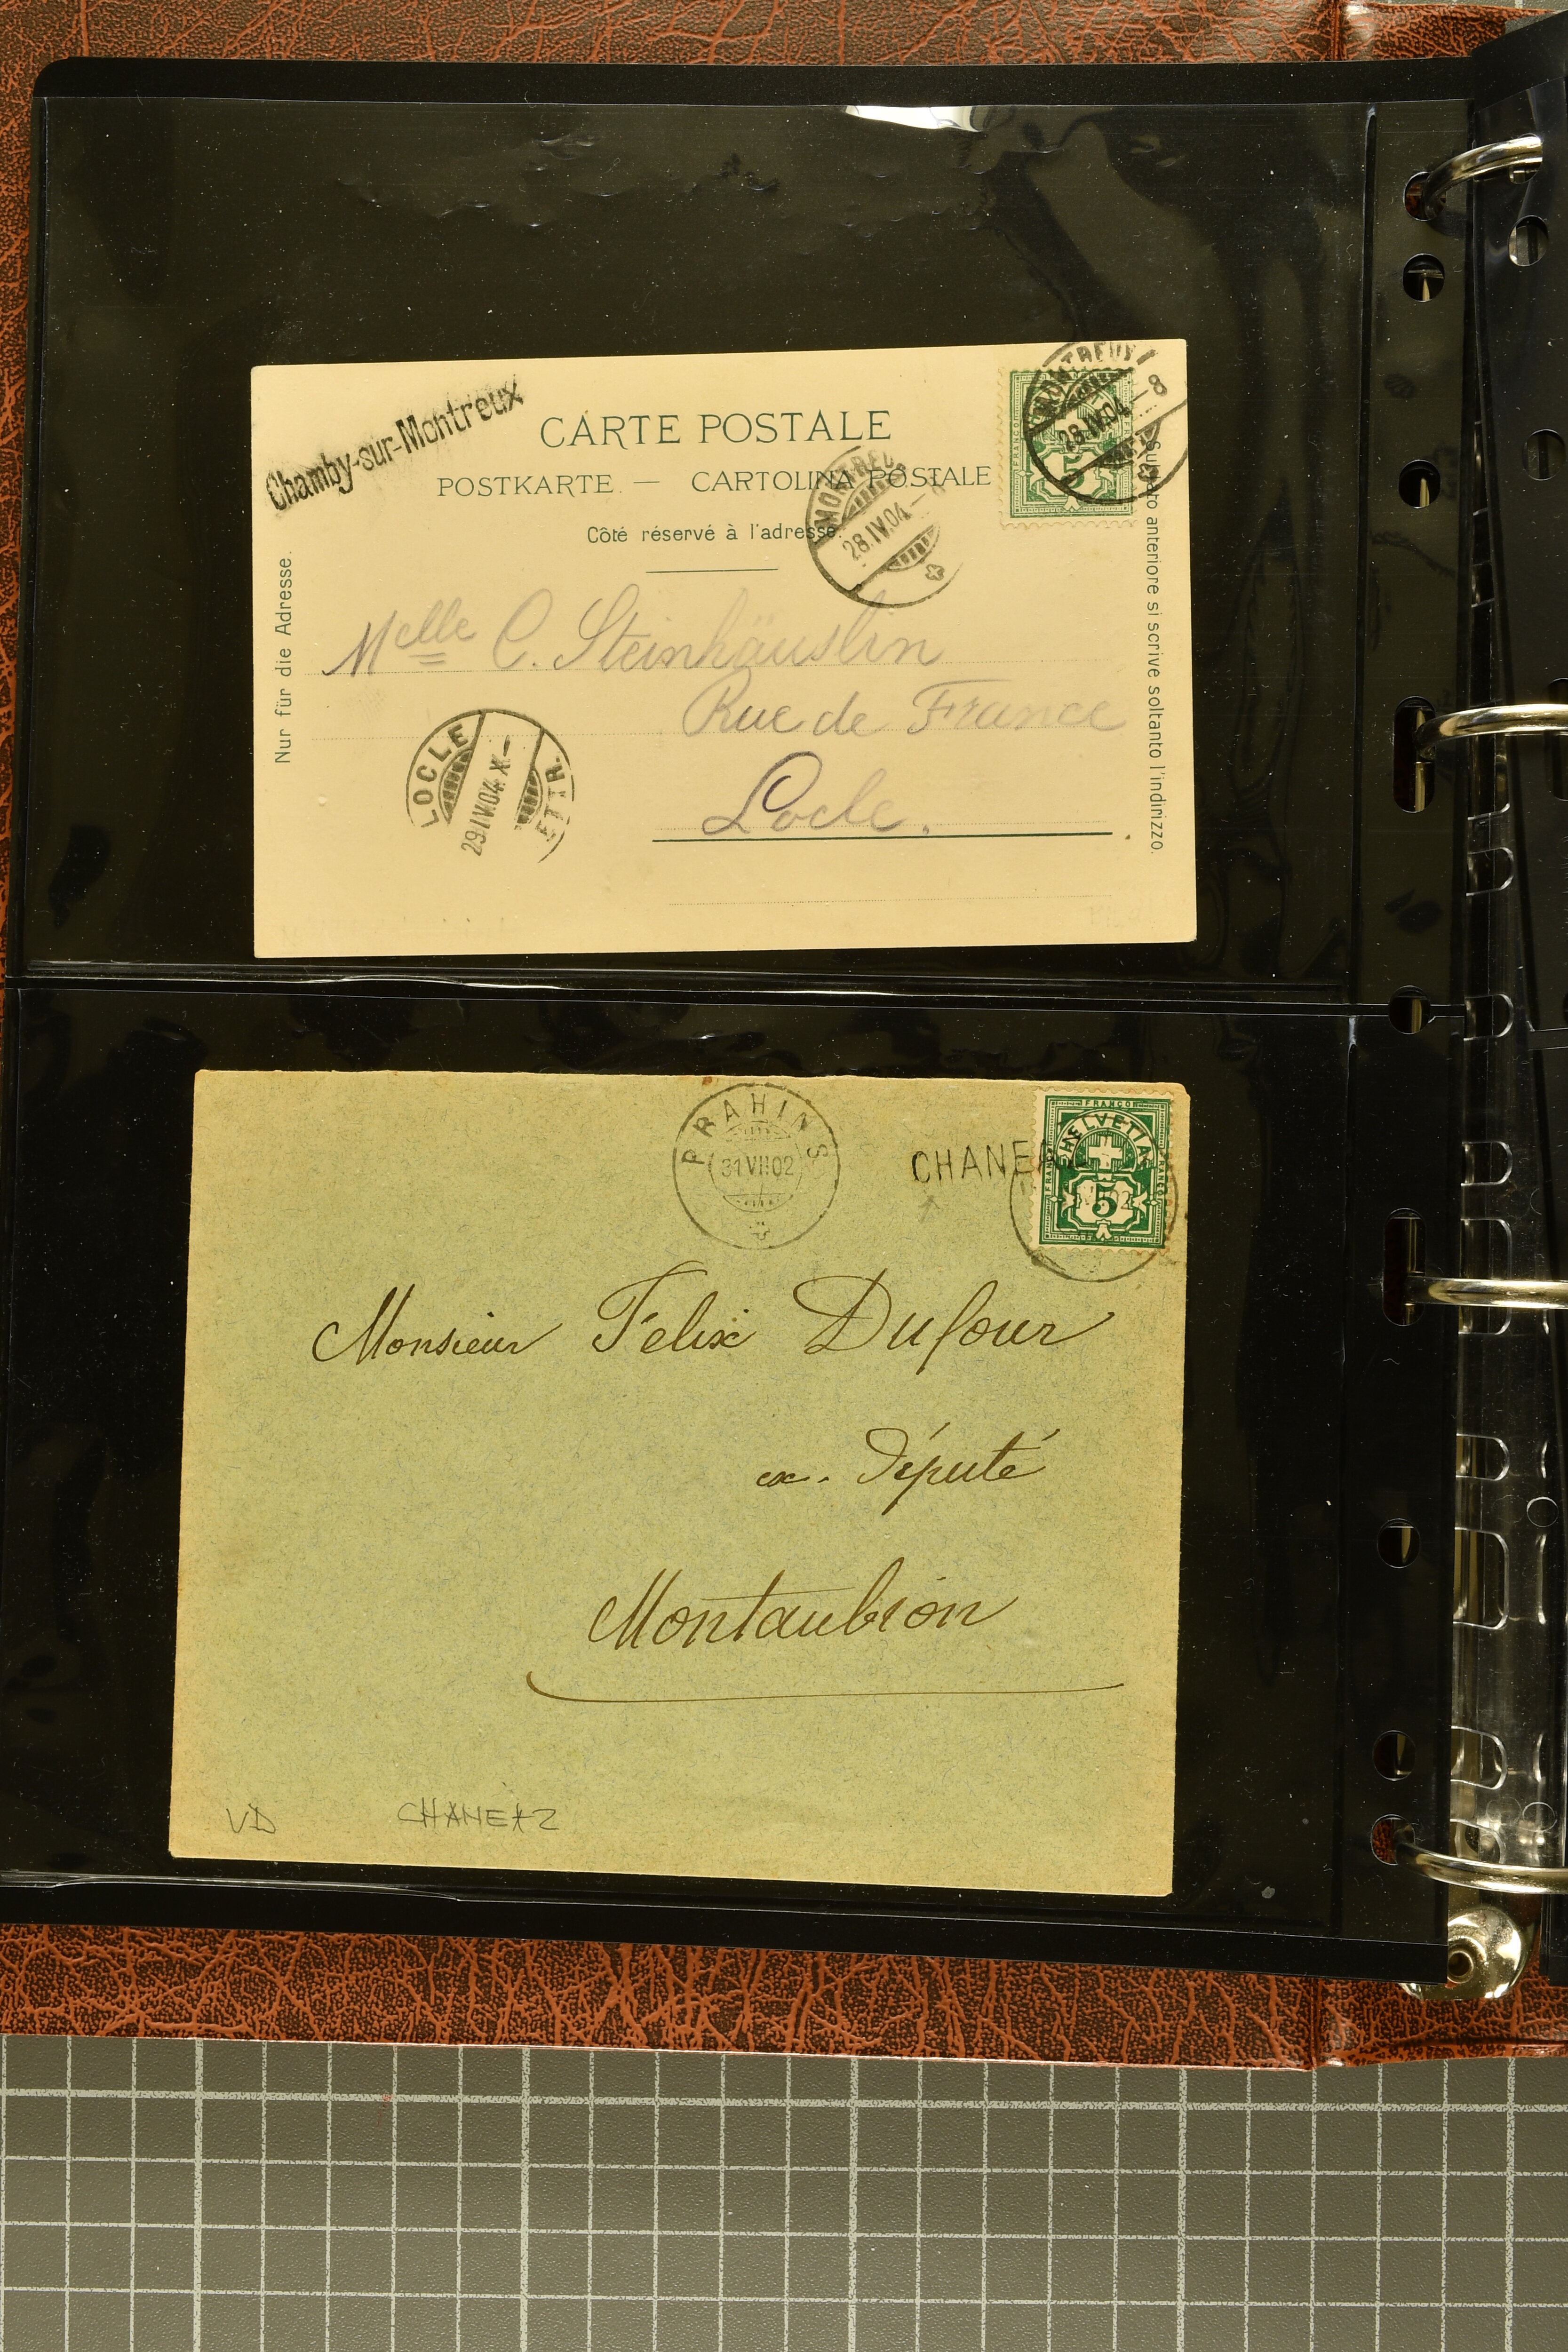 Chamby-sur-Montreux
CARTE POSTALE
POSTKARTE. — CARTOLINA POSTALE
Côté réservé à l'adresse.
Nur für die Adresse.
anteriore si scrive soltanto l'indirizzo.
MONTREUX
28.IV.04.–8
5
28.IV.04.–
Melle C. Steinhäuslin
Rue de France
Locle.
LOCLE
29.IV.04.X–
PRAHINS
31 VII 02
CHANEA
FRANCO
HELVETIA
FRANCO
FRANCO
5
Monsieur Félix Dufour
ex. Député
Montaubion
VD
CHANEAZ